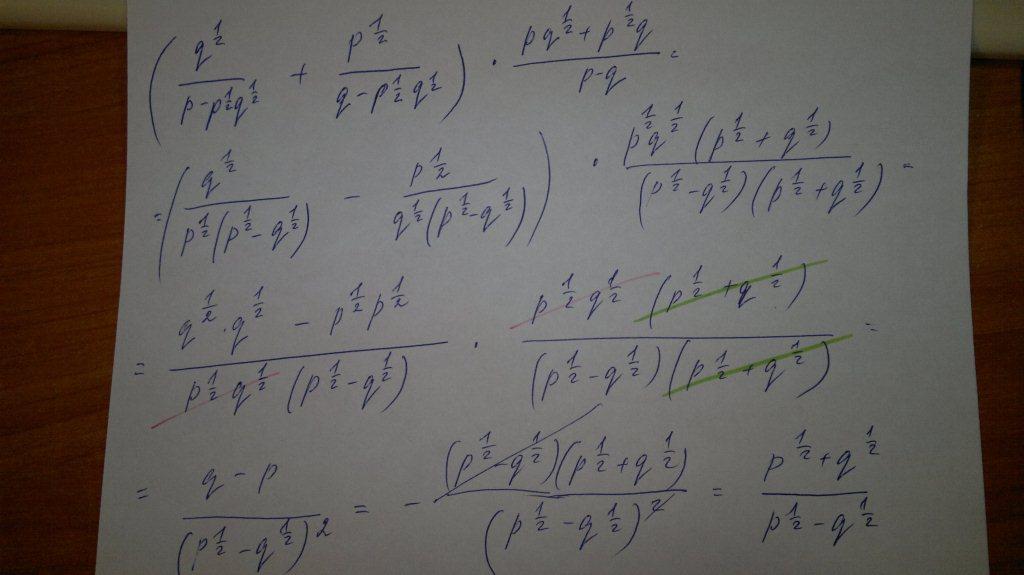 (q^{1/2}/(p-p^{1/2}q^{1/2}) + p^{1/2}/(q-p^{1/2}q^{1/2})) · (pq^{1/2}+p^{1/2}q)/(p-q) =
=(q^{1/2}/(p^{1/2}(p^{1/2}-q^{1/2})) - p^{1/2}/(q^{1/2}(p^{1/2}-q^{1/2}))) · (p^{1/2}q^{1/2}(p^{1/2}+q^{1/2}))/((p^{1/2}-q^{1/2})(p^{1/2}+q^{1/2})) =
= (q^{1/2}·q^{1/2} - p^{1/2}p^{1/2})/(p^{1/2}q^{1/2}(p^{1/2}-q^{1/2})) · (p^{1/2}q^{1/2}(p^{1/2}+q^{1/2}))/((p^{1/2}-q^{1/2})(p^{1/2}+q^{1/2})) =
= (q-p)/(p^{1/2}-q^{1/2})^2 = - ((p^{1/2}-q^{1/2})(p^{1/2}+q^{1/2}))/(p^{1/2}-q^{1/2})^2 = (p^{1/2}+q^{1/2})/(p^{1/2}-q^{1/2})